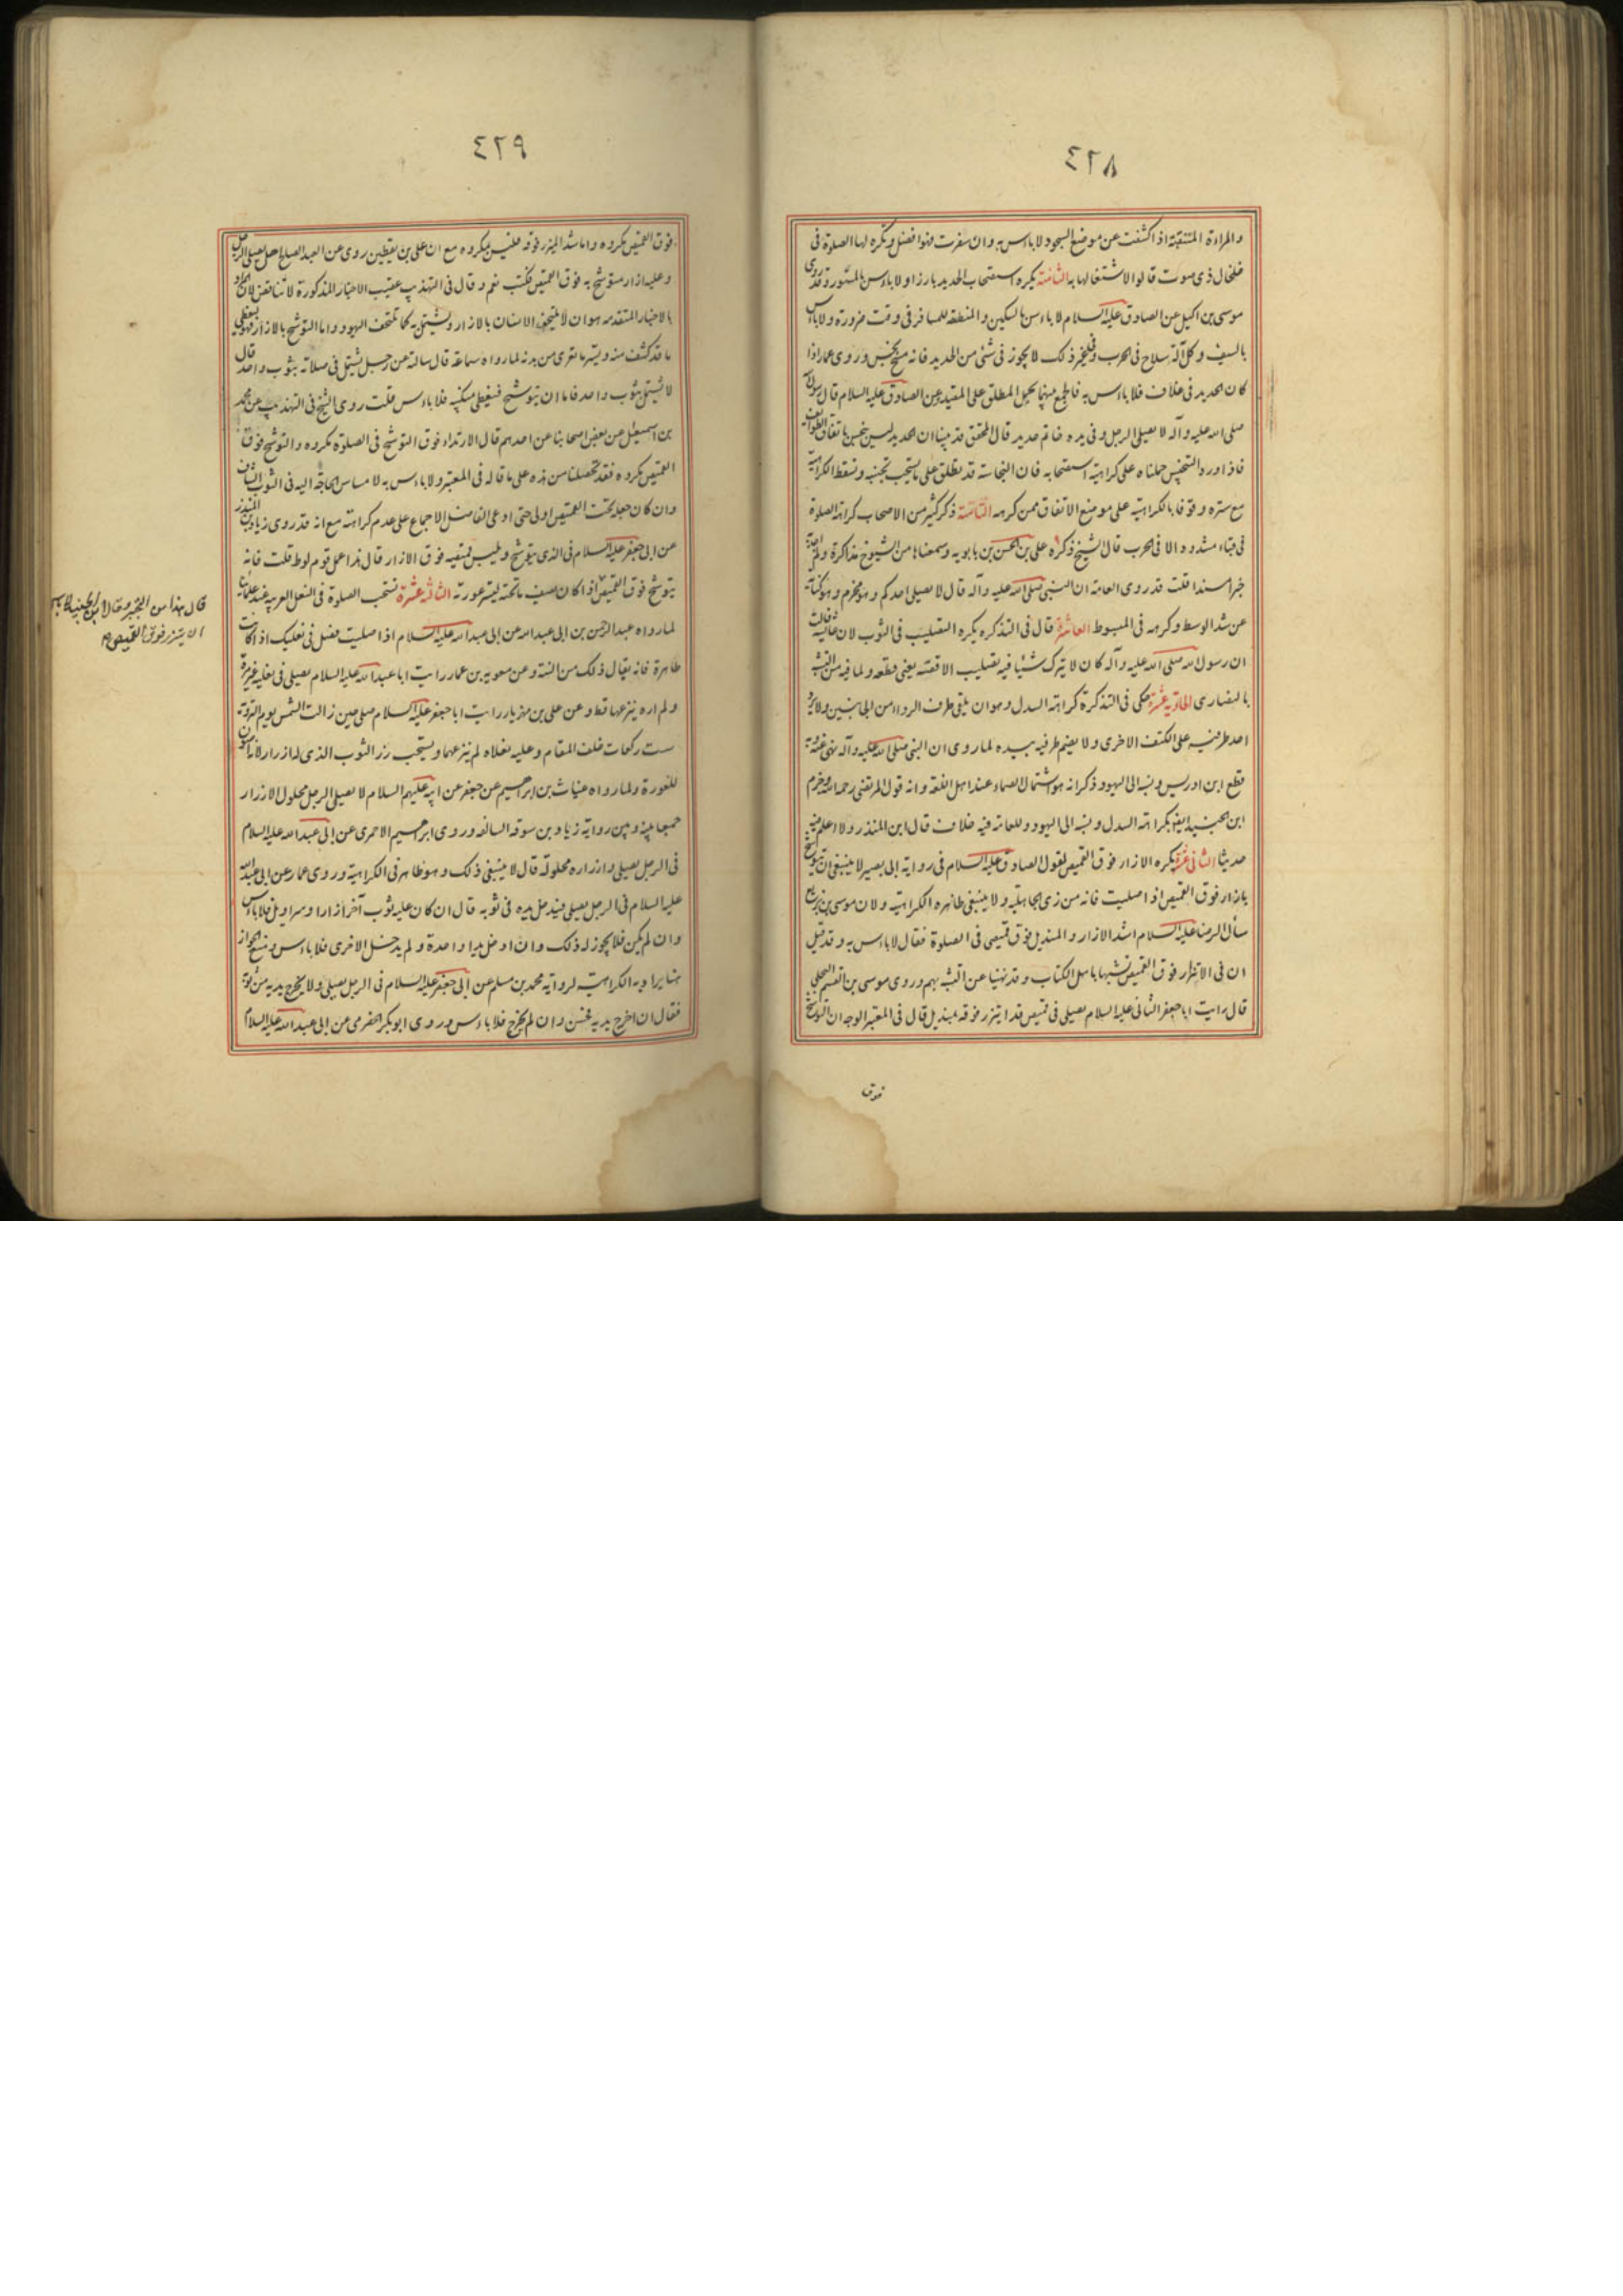 ٤٢٨
والمراءة المتنقبة اذا كشفت عن موضع السجود لا باءس به وان سفرت فهو افضل وتكره لها الصلوة فى
خلخال ذى صوت قالوا لاشتغالها به الثامنة يكره استصحاب الحديد بارزا ولا باءس بالمستور وقد روى
موسى بن اكيل عن الصادق عليه السلام لا باءس بالسكين والمنطقه للمسافر فى وقت ضرورة ولا باءس
بالسيف وكل آلة سلاح فى الحرب وفى غير ذلك لا يجوز فى شئ من الحديد فانه مسخ نجس وروى عمار اذا
كان الحديد فى غلاف فلا باءس به فالجمع بينهما بحمل المطلق على المقيد وعن الصادق عليه السلام قال رسول الله
صلى الله عليه وآله لا يصلى الرجل وفى يده خاتم حديد قال المحقق قد بينا ان الحديد ليس بنجس باتفاق الطوائف
فاذا ورد التنجيس حملناه على كراهية استصحابه فان النجاسة قد تطلق على ما يستحب تجنبه وتسقط الكراهية
مع ستره وقوفا بالكراهية على موضع الاتفاق ممن كرهه التاسعة ذكر كثير من الاصحاب كراهة الصلوة
فى قباء مشدود الا فى الحرب قال الشيخ ذكره على بن الحسين بن بابويه وسمعناه من الشيوخ مذاكرة ولم اجد به
خبرا مسندا قلت قد روى العامة ان النبى صلى الله عليه وآله قال لا يصلى احدكم وهو محزم وهو كناية
عن شد الوسط وكرهه فى المبسوط العاشرة قال فى التذكره يكره التصليب فى الثوب لان عائشة قالت
ان رسول الله صلى الله عليه وآله كان لا يترك شيئا فيه تصليب الا قضبه يعنى قطعه ولما فيه من التشبه
بالنصارى الحادية عشرة حكى فى التذكرة كراهة السدل وهو ان يلقى طرف الرداء من الجانبين ولا يرد
احد طرفيه على الكتف الاخرى ولا يضم طرفيه بيده لما روى ان النبى صلى الله عليه وآله نهى عنه وبه
قطع ابن ادريس ونسبه الى اليهود وذكر انه هو اشتمال الصماء عند اهل اللغة وانه قول المرتضى رحمه الله وجزم
ابن الجنيد ايضا بكراهة السدل ونسبه الى اليهود وللعامة فيه خلاف قال ابن المنذر ولا اعلم فيه
حديثا الثانى عشرة يكره الازار فوق القميص لقول الصادق عليه السلام فى رواية ابى بصير لا ينبغى ان يتوشح
بازار فوق القميص اذا صليت فانه من زى الجاهلية ولا ينبغى ظاهره الكراهية ولان موسى بن بزيع
سأل الرضا عليه السلام اشد الازار والمنديل فوق قميصى فى الصلوة فقال لا باءس به وقد قيل
ان فى الاتزار فوق القميص تشبها باهل الكتاب وقد نهينا عن التشبه بهم وروى موسى بن القسم البجلى
قال رايت ابا جعفر الثانى عليه السلام يصلى فى قميص قد ايتزر فوقه بمنديل قال فى المعتبر الوجه ان التوشح
فوق
٤٢٩
فوق القميص مكروه واما شد الميزر فوقه فليس بمكروه مع ان على بن يقطين روى عن العبد الصالح هل يصلى الرجل
وعليه ازار متوشح به فوق القميص فكتب نعم وقال فى التهذيب عقيب الاخبار المذكورة لا تناقض لان المراد
بالاخبار المتقدمه هو ان لا يلتحف الانسان بالازار ويشتمل به كما تلتحف اليهود واما التوشح بالازار فهو ليغطى
ما قد كشف منه ويستر ما تعرى من بدنه لما رواه سماعة قال سالته عن رجل يشتمل فى صلاته بثوب واحد قال
لا يشتمل بثوب واحد فاما ان يتوشح فيغطى منكبيه فلا باءس قلت روى الشيخ فى التهذيب عن محمد
بن اسمعيل عن بعض اصحابنا عن احدهم قال الارتداء فوق التوشح فى الصلوة مكروه والتوشح فوق
القميص مكروه فقد تحصلنا من هذه على ما قاله فى المعتبر ولا باءس به لا مساس الحاجة اليه فى الثوب الشاف
وان كان جعله تحت القميص اولى حتى ادعى الفاضل الاجماع على عدم كراهته مع انه قد روى زياد بن المنذر
عن ابى جعفر عليه السلام فى الذى يتوشح ويلبس قميصه فوق الازار قال هذا عمل قوم لوط قلت فانه
يتوشح فوق القميص اذا كان يصف ما تحته ليستر عورته الثالثه عشرة تستحب الصلوة فى النعل العربيه عند علمائنا
لما رواه عبد الرحمن بن ابى عبد الله عن ابى عبد الله عليه السلام اذا صليت فصل فى نعليك اذا كانت
طاهرة فانه يقال ذلك من السنة وعن معويه بن عمار رايت ابا عبد الله عليه السلام يصلى فى نعليه غير مرة
ولم اره ينزعهما قط وعن على بن مهزيار رايت ابا جعفر عليه السلام صلى حين زالت الشمس يوم التروية
ست ركعات خلف المقام وعليه نعلاه لم ينزعهما ويستحب زر الثوب الذى له ازرار لانه اصون
للعورة ولما رواه غياث بن ابرهيم عن جعفر عن ابيه عليهم السلام لا يصلى الرجل محلول الازرار
جمعا بينه وبين رواية زياد بن سوقه السالفه وروى ابرهيم الاحمرى عن ابى عبد الله عليه السلام
فى الرجل يصلى وازراره محلولة قال لا ينبغى ذلك وهو ظاهر فى الكراهية وروى عمار عن ابى عبد الله
عليه السلام فى الرجل يصلى فيدخل يده فى ثوبه قال ان كان عليه ثوب آخر ازارا وسراويل فلا باءس
وان لم يكن فلا يجوز له ذلك وان ادخل يدا واحدة ولم يدخل الاخرى فلا باءس ومنع الجواز
هنا يراد به الكراهية لرواية محمد بن مسلم عن ابى جعفر عليه السلام فى الرجل يصلى ولا يخرج يديه من ثوبه
فقال ان اخرج يديه فحسن وان لم يخرج فلا باءس وروى ابو بكر الحضرمى عن ابى عبد الله عليه السلام
قال هذا من التجبر وقال ابن الجنيد لا باس
ان يتزر فوق القميص